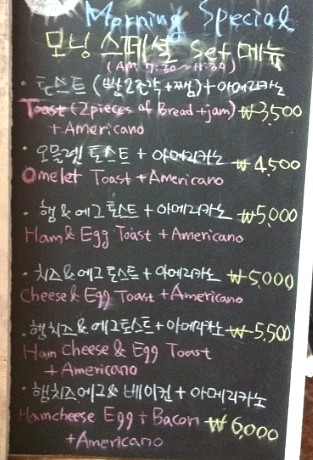 Morning Special
모닝 스페셜 set 메뉴
(AM 7:30~11:30)
· 토스트 (빵2조각+쨈)+아메리카노
Toast (2pieces of Bread+jam) ₩3,500
+ Americano
· 오믈렛 토스트 + 아메리카노 ₩4,500
Omelet Toast + Americano
· 햄&에그 토스트 + 아메리카노 ₩5,000
Ham & Egg Toast + Americano
· 치즈&에그 토스트 + 아메리카노 ₩5,000
Cheese & Egg Toast + Americano
· 햄치즈&에그토스트 + 아메리카노 ₩5,500
Ham Cheese & Egg Toast
+ Americano
· 햄치즈에그& 베이컨 + 아메리카노
Hamcheese Egg + Bacon ₩6,000
+ Americano